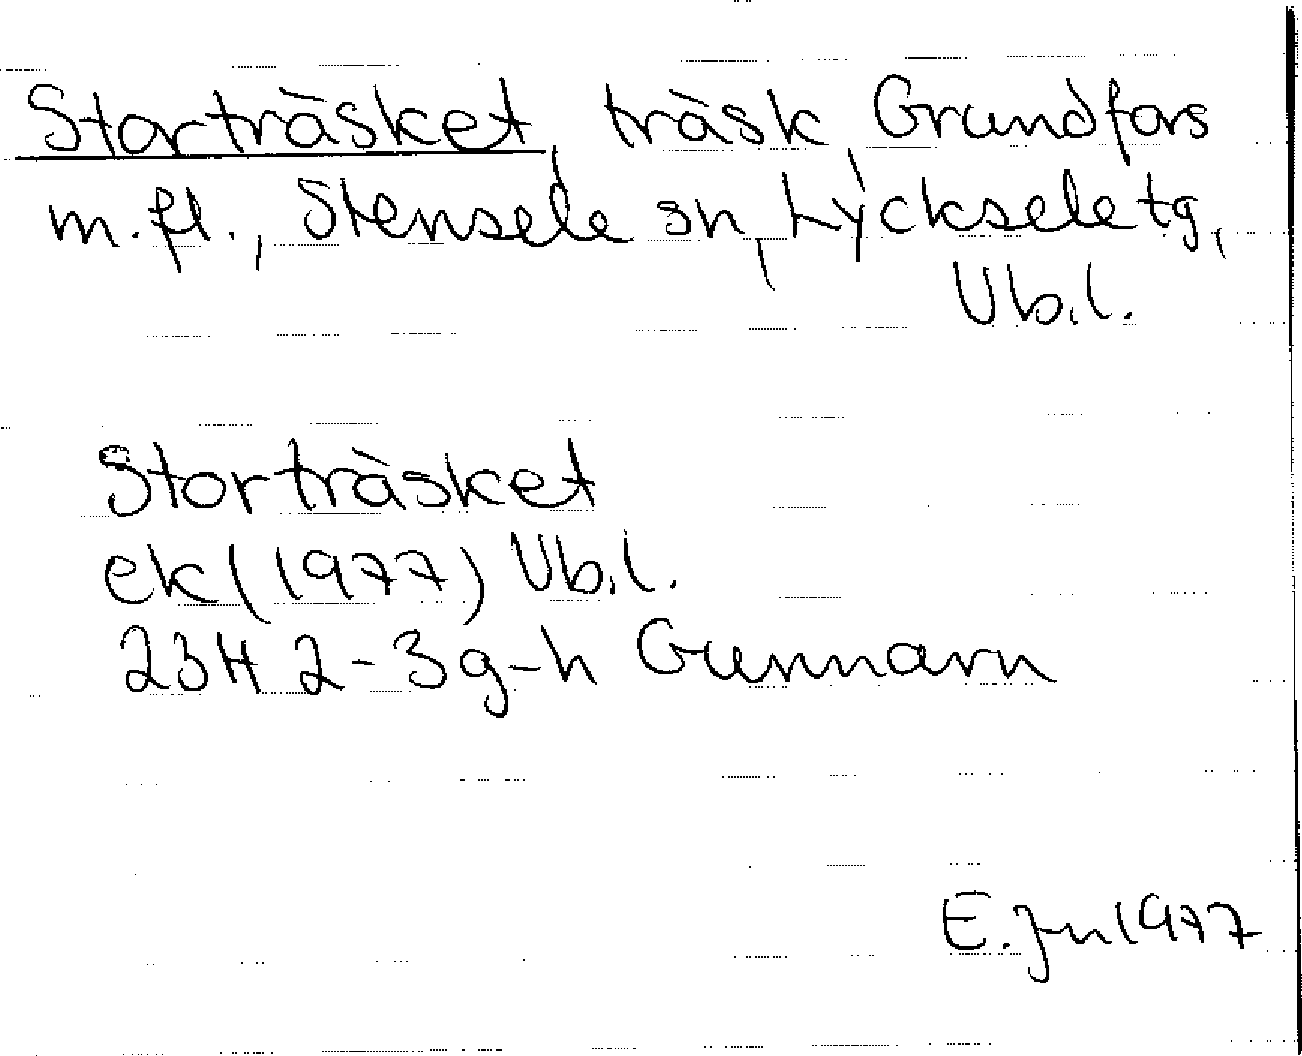 Storträsket, träsk, Grundfors
m.fl., Stensele sn, Lycksele tg,
Vb.l.
Storträsket
ek (1977) Vb.l.
23H 2-3g-h Gunnarn
E. Jn 1977